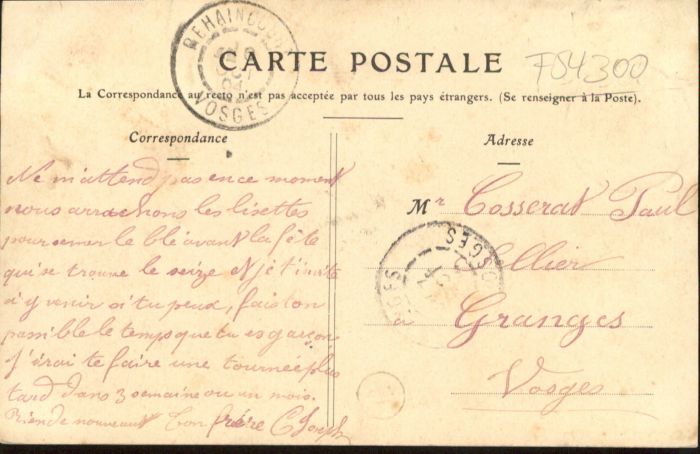 REHAINCOURT
VOSGES
CARTE POSTALE
784300
La Correspondance au recto n'est pas acceptée par tous les pays étrangers. (Se renseigner à la Poste).
Correspondance
Ne m'attend pas en ce moment
nous arrachons les lisettes
pour semer le blé avant la fête
qui se trouve le seize N je t'invite
à y venir si tu peux, fais ton
possible le temps que tu es garçon
j'irai te faire une tournée plus
tard dans 3 semaine ou un mois.
Rien de nouveaux ton frère C Joseph
Adresse
Mr Cosserat Paul
VOSGES
à Granges
Vosges